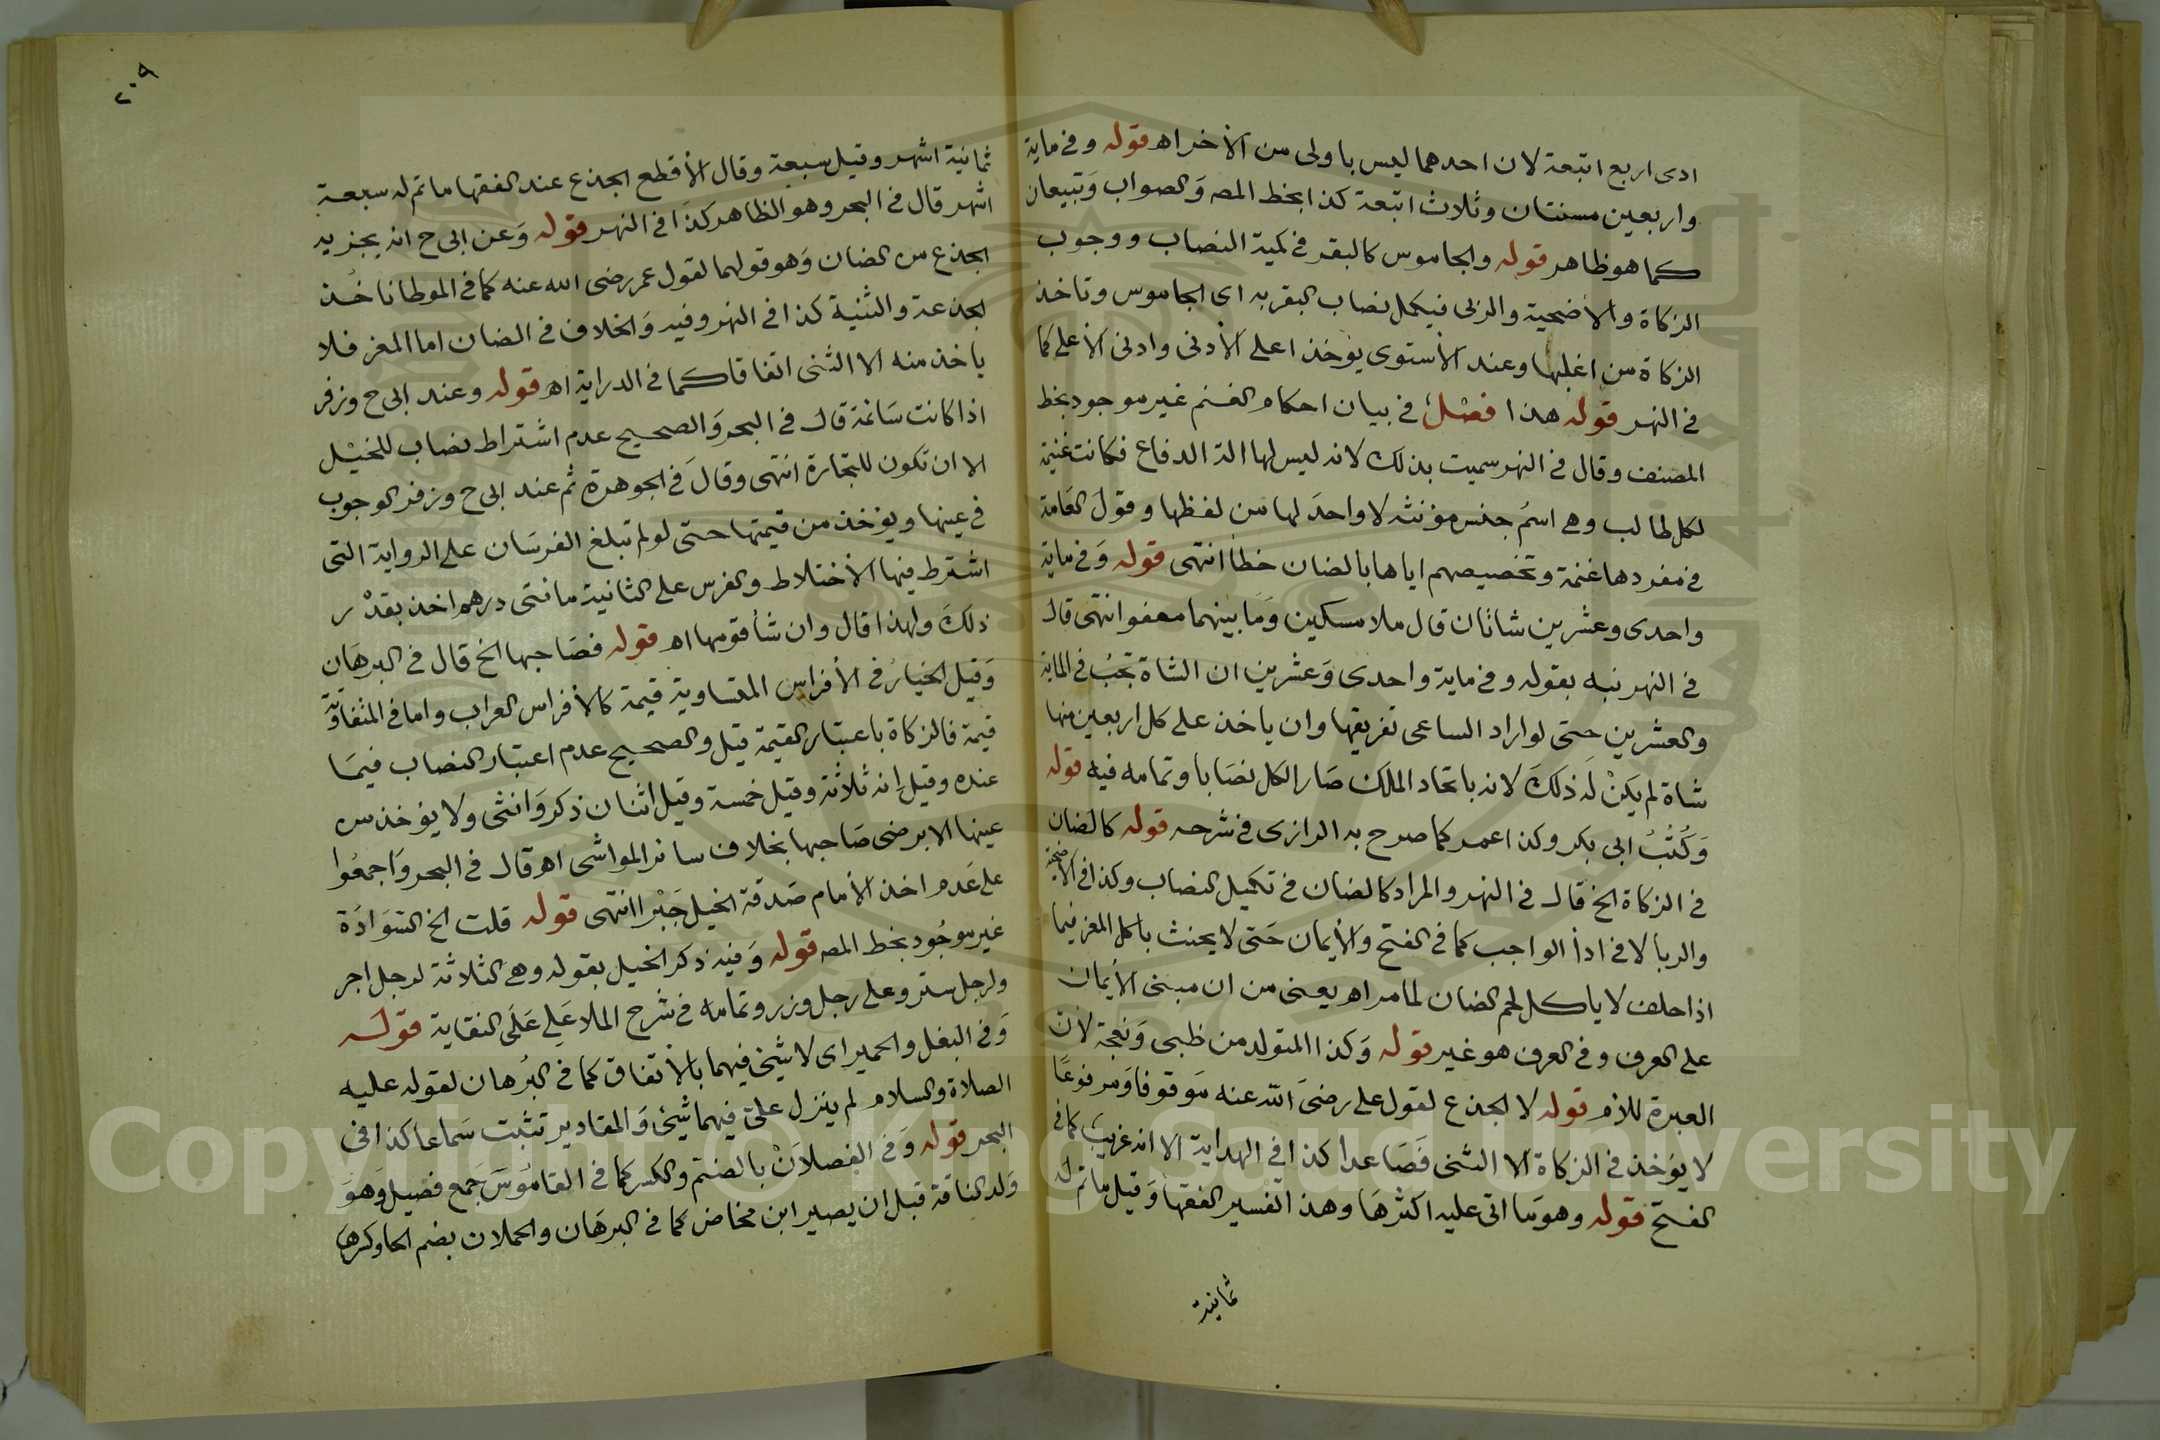 ادى اربع اتبعة لان احدهما ليس باولى من الأخر اه قوله وفي ماية
واربعين مسنتان وثلاث اتبعة كذا بخط المصه والصواب وتبيعان
كما هو ظاهر قوله والجاموس كالبقر في كمية النصاب ووجوب
الزكاة والأضحية والربى فيكمل نصاب البقر به اى الجاموس وتاخذ
الزكاة من اغلبها وعند الأستوى يؤخذ اعلى الأدنى وادنى الأعلى كما
في النهر قوله هذا فصل في بيان احكام الغنم غير موجود بخط
المصنف وقال في النهر سميت بذلك لانه ليس لها الة الدفاع فكانت غنيمة
لكل طالب وهي اسم جنس مؤنثه لا واحد لها من لفظها وقول العامة
في مفردها غنمة وتخصيصهم اياها بالضان خطأ انتهى قوله وفي ماية
واحدى وعشرين شاتان قال ملا مسكين وما بينهما معفو انتهى قال
في النهر نبه بقوله وفي ماية واحدى وعشرين ان الشاة تجب في الماية
والعشرين حتى لو اراد الساعى تفريقها وان ياخذ على كل اربعين منها
شاة لم يكن له ذلك لانه باتحاد الملك صار الكل نصابا وتمامه فيه قوله
وكتب ابى بكر وكذا عمر كما صرح به الرازى في شرحه قوله كالضان
في الزكاة الخ قال في النهر والمراد كالضان في تكميل النصاب وكذا في الأضحية
والربا لا في ادأ الواجب كما في الفتح والأيمان حتى لا يحنث باكل المعز فيما
اذا حلف لا ياكل لحم الضان لما مر اه يعنى من ان مبنى الأيمان
على العرف وفي العرف هو غير قوله وكذا المتولد من ظبى ونعجة لأن
العبرة للأم قوله لا الجذع لقول على رضى الله عنه موقوفا ومرفوعا
لا يؤخذ في الزكاة الا الثنى فصاعدا كذا في الهداية الا انه غريب كما في
الفتح قوله وهو ما اتى عليه اكثرها وهذا تفسير الفقها وقيل ما تم له
ثمانية
٢٠٩
ثمانية اشهر وقيل سبعة وقال الأقطع الجذع عند الفقها ما تم له سبعة
اشهر قال في البحر وهو الظاهر كذا في النهر قوله وعن ابى ح انه يجزيه
الجذع من الضان وهو قولهما لقول عمر رضى الله عنه كما في الموطا ناخذ
الجذعة والثنية كذا في النهر وفيه والخلاف في الضان اما المعز فلا
ياخذ منه الا الثنى اتفاقا كما في الدراية اه قوله وعند ابى ح وزفر
اذا كانت سائمة قال في البحر والصحيح عدم اشتراط نصاب للخيل
الا ان تكون للتجارة انتهى وقال في الجوهرة ثم عند ابى ح وزفر الوجوب
في عينها ويؤخذ من قيمتها حتى لو لم تبلغ الفرسان على الرواية التى
اشترط فيها الأختلاط والفرس على الثانية مائتى درهم اخذ بقدر
ذلك ولهذا قال وان شأ قومها اه قوله فصاحبها الخ قال في البرهان
وقيل الخيار في الأفراس المتساوية قيمة كالأفراس العراب واما في المتفاوتة
قيمة فالزكاة باعتبار القيمة قيل والصحيح عدم اعتبار النصاب فيما
عنده وقيل انه ثلاثة وقيل خمسة وقيل اثنان ذكر وانثى ولا يؤخذ من
عينها الا برضى صاحبها بخلاف سائر المواشى اه قال في البحر واجمعوا
على عدم اخذ الأمام صدقة الخيل جبرا انتهى قوله قلت الخ السوادة
غير موجود بخط المصه قوله وفيه ذكر الخيل بقوله وهي الثلاثة لرجل اجر
ولرجل ستر وعلى رجل وزر وتمامه في شرح الملا على على النقاية قوله
وفي البغل والحمير اى لا شيئ فيهما بالأتفاق كما في البرهان لقوله عليه
الصلاة والسلام لم ينزل على فيهما شيئ والمقادير تثبت سماعا كذا في
البحر قوله وفي الفصلان بالضم والكسر كما في القاموس جمع فصيل وهو
ولد الناقة قبل ان يصير ابن مخاض كما في البرهان والحملان بضم الحا وكسرها
Copyright © King Saud University